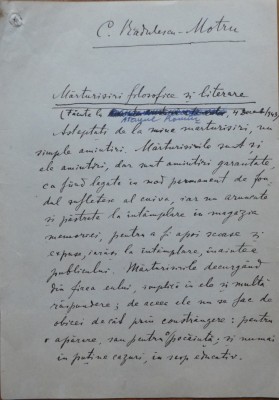 C. Rădulescu-Motru
Mărturisiri filosofice și literare
(Făcute la Ateneul Român, 4 Decemb. 1943)
Așteptați de la mine mărturisiri, nu
simple amintiri. Mărturisirile sunt și
ele amintiri, dar sunt amintiri garantate,
ca fiind legate în mod permanent de fon-
dul sufletesc al cuiva, iar nu aruncate
și păstrate la întâmplare în magazia
memoriei, pentru a fi apoi scoase și
expuse, iarăși la întâmplare, înaintea
publicului. Mărturisirile decurgând
din firea eului, implică în ele și multă
răspundere; de aceea ele nu se fac de
obicei decât prin constrângere: pentru
apărare, sau pentru pocăință; și numai
în puține cazuri, în scop educativ.